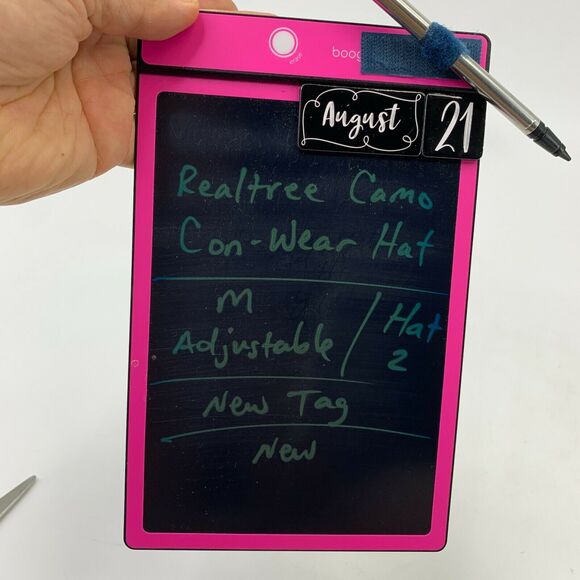 erase
boog
August 21
Realtree Camo
Con-Wear Hat
M
Adjustable / Hat 2
New Tag
New